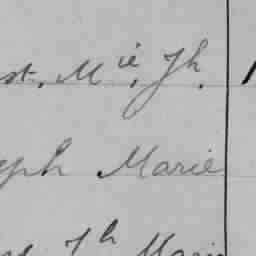 st, Mie, Jh.
eph Marie
Jh Marie